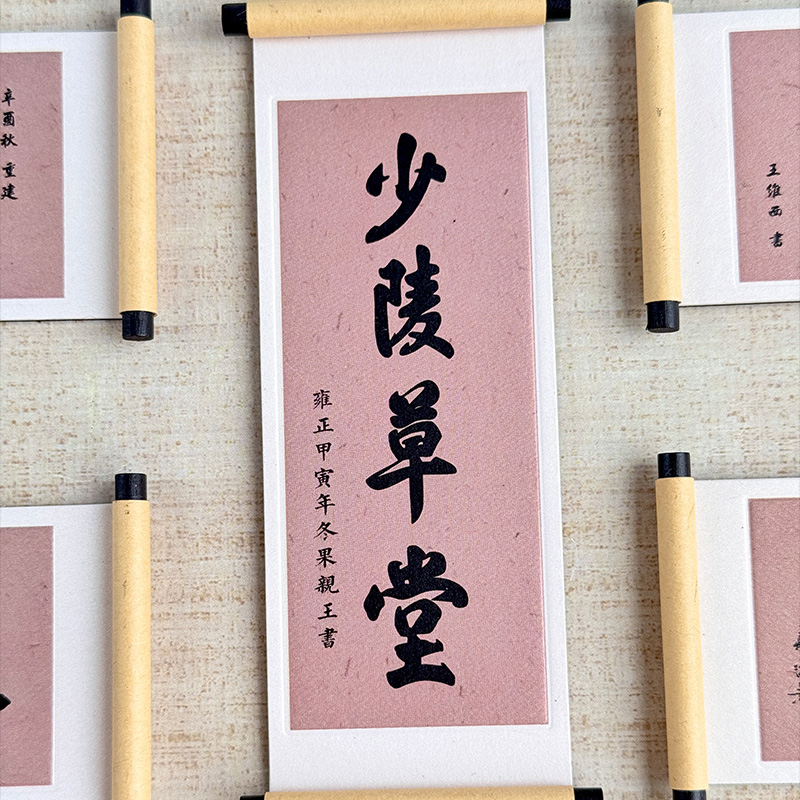 少陵草堂
雍正甲寅年冬果親王書
辛酉秋 重建
王維西 書